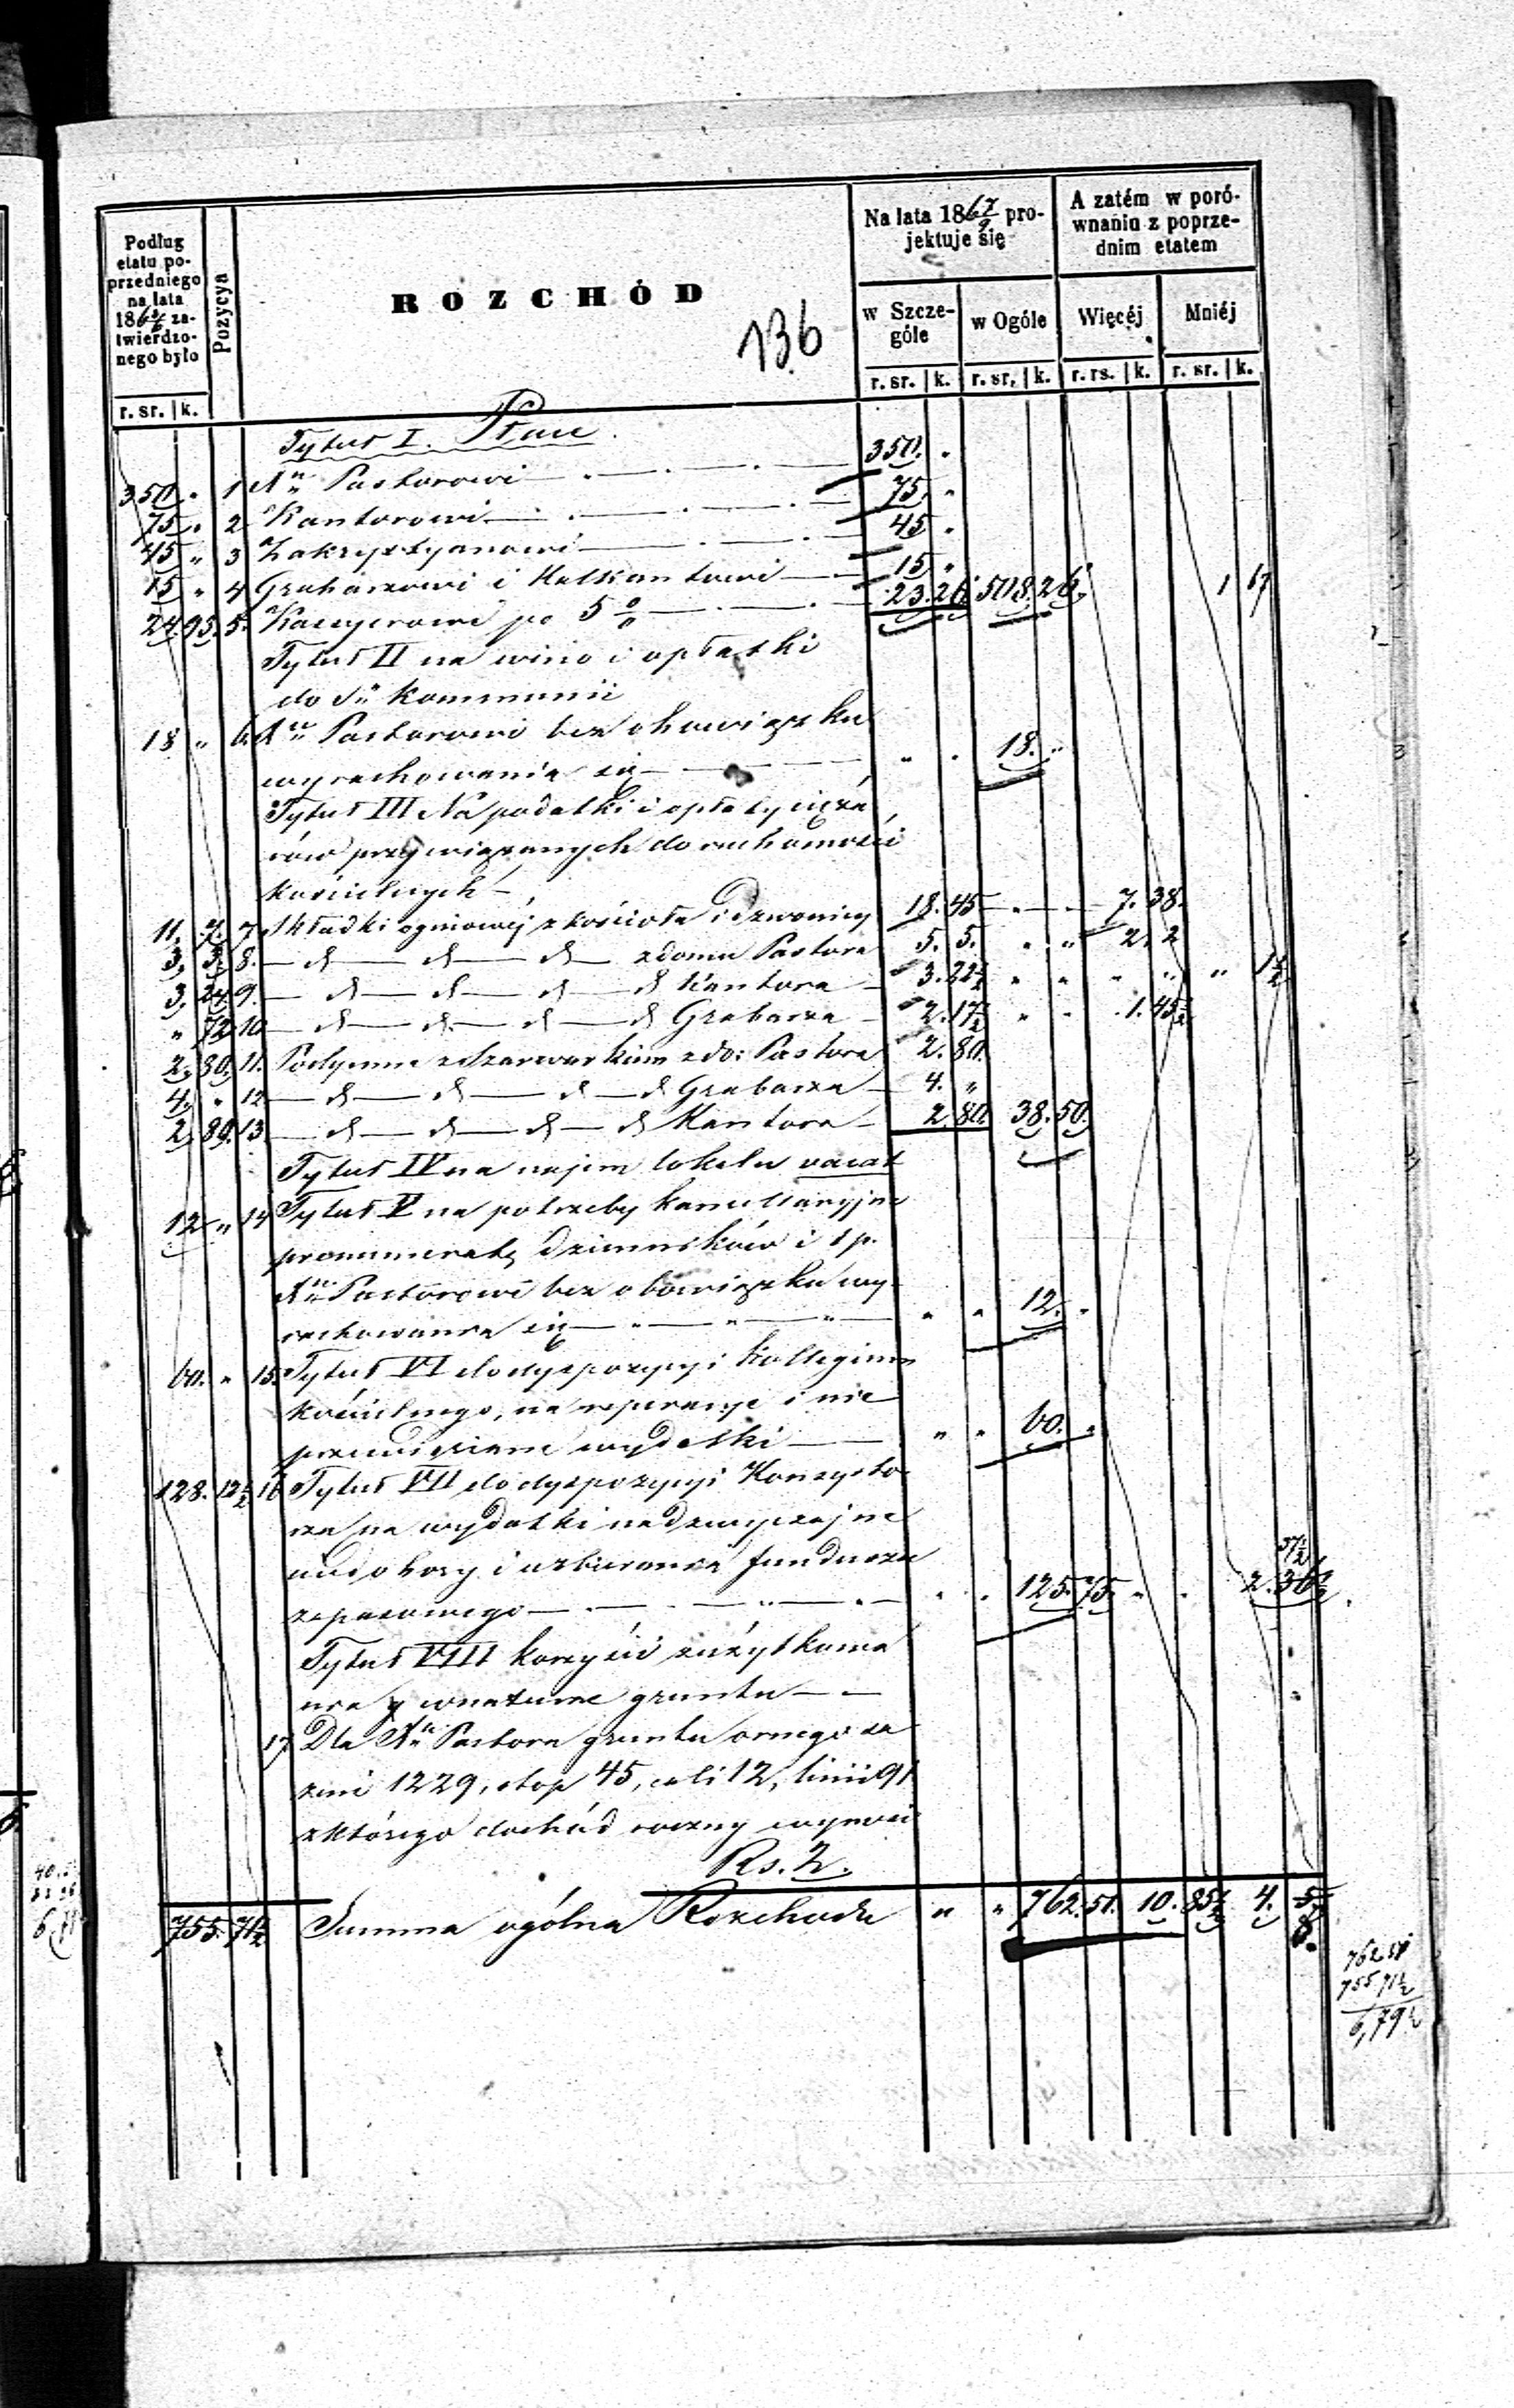 Podług etatu poprzedniego na lata 186 4/6 zatwierdzonego było
r. sr. | k.
Pozycya
ROZCHÓD
136
Na lata 186 7/9 projektuje się
w Szczególe
r. sr. | k.
w Ogóle
r. sr. | k.
A zatém w porównaniu z poprzednim etatem
Więcéj
r. rs. | k.
Mniéj
r. sr. | k.
Tytuł I. Płace
350 " 1 Xu Pastorowi 350. "
75 " 2 Kantorowi 75. "
45 " 3 Zakrystyanowi 45 "
15 " 4 Grabarzowi i Kalkantowi 15 "
24. 93. 5. Kassyerowi po 5 % 23. 26. 508. 26. 1 67
Tytuł II na wino i opłatki
do Sej Kommunii
18 " 6. Xu Pastorowi bez obowiązku
wyrachowania się " " 18. "
Tytuł III Na podatki i opłaty cięża
rów przywiązanych do ruchomości
kościelnych
11. 7. 7. Składki ogniowéj z kościoła i dzwonicy 18. 45 " 7. 38.
3. 3. 8. — d — d — d — z domu Pastora 5. 5. " " 2. 2
3. 24. 9. — d — d — d — d Kantora 3. 22½ " " " " " 1½
" 72. 10 — d — d — d — d Grabarza 2. 17½ " " 1. 45½
2. 80. 11. Podymne z Szarwarkiem z do: Pastora 2. 80.
4. " 12 — d — d — d — d Grabarza 4. "
2. 80. 13 — d — d — d — d Kantora 2. 80. 38. 50.
Tytuł IV na najem lokalu vacat
12 " 14 Tytuł V na potrzeby kancellaryjne
prenumeratę dzienników i t p.
Xu Pastorowi bez obowiązku wy-
rachowania się " " 12. "
60. " 15. Tytuł VI do dyspozycyi Kollegium
kościelnego, na reperacye i nie
przewidziane wydatki " " 60. "
128. 12½ 16 Tytuł VII do dyspozycyi Konsysto
rza na wydatki nadzwyczajne
niedobory i uzbierania funduszu
zapasowego " " 125. 75. " " 2. 36½ 37½
Tytuł VIII korzyści z użytkowa
nia w naturze gruntu
17 Dla Xa Pastora gruntu ornego sa
żeni 1229, stop 45, cali 12, linii 91
z którego dochód roczny wynosi
Rs. 2.
755. 71½ Summa ogólna Rozchodu " " 762. 51. 10. 85½ 4. 5 6.
762.51
755 71½
6,79½